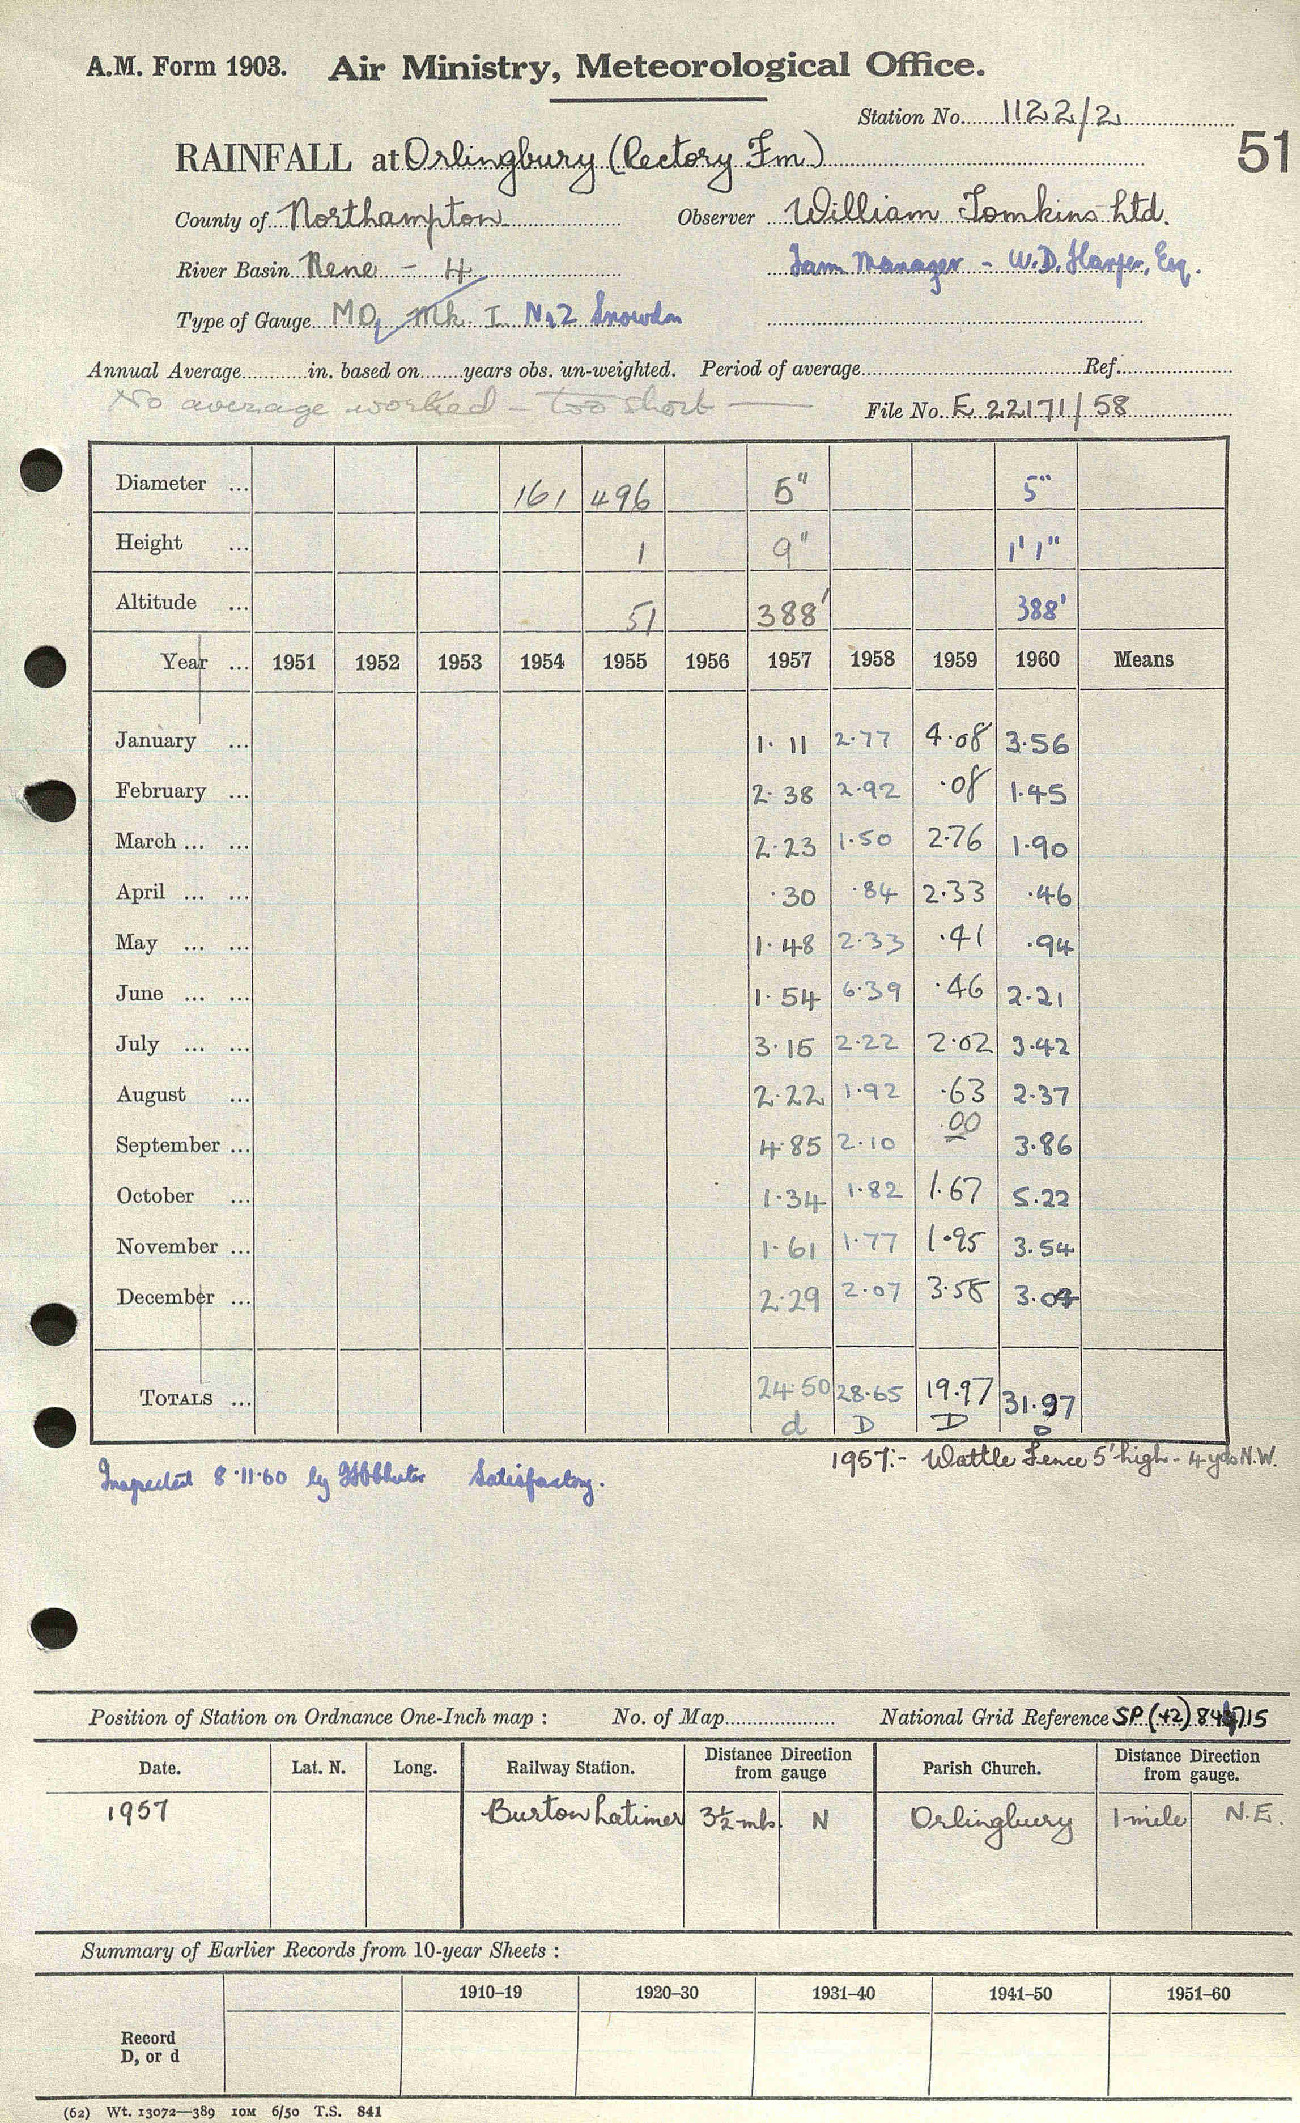 A.M. Form 1903. Air Ministry, Meteorological Office.
Station No. 1122/2
51
RAINFALL at Orlingbury (Rectory Fm)
County of Northampton Observer William Tomkins Ltd.
River Basin Nene - 4 Farm Manager - W.D. Harper, Esq.
Type of Gauge MO, Mk I No2 Snowdon
Annual Average in. based on years obs. un-weighted. Period of average Ref.
No average worked - too short
File No. E 22171/58
Diameter ... 161 496 5" 5"
Height ... 1 9" 1' 1"
Altitude ... 51 388' 388'
Year ... 1951 1952 1953 1954 1955 1956 1957 1958 1959 1960 Means
January ... 1.11 2.77 4.08 3.56
February ... 2.38 2.92 .08 1.45
March ... ... 2.23 1.50 2.76 1.90
April ... ... .30 .84 2.33 .46
May ... ... 1.48 2.33 .41 .94
June ... ... 1.54 6.39 .46 2.21
July ... ... 3.15 2.22 2.02 3.42
August ... 2.22 1.92 .63 2.37
September ... 4.85 2.10 .00 3.86
October ... 1.34 1.82 1.67 5.22
November ... 1.61 1.77 1.95 3.54
December ... 2.29 2.07 3.58 3.04
TOTALS ... 24.50 28.65 19.97 31.97
d D D D
1957:- Wattle Fence 5' high - 4 yds N.W.
Inspected 8.11.60 by Satisfactory.
Position of Station on Ordnance One-Inch map : No. of Map National Grid Reference SP (42) 715
Date. Lat. N. Long. Railway Station. Distance Direction from gauge Parish Church. Distance Direction from gauge.
1957 Burton Latimer 3½ mls. N Orlingbury 1 mile N.E.
Summary of Earlier Records from 10-year Sheets :
1910–19 1920–30 1931–40 1941–50 1951–60
Record
D, or d
(62) Wt. 13072—389 10M 6/50 T.S. 841